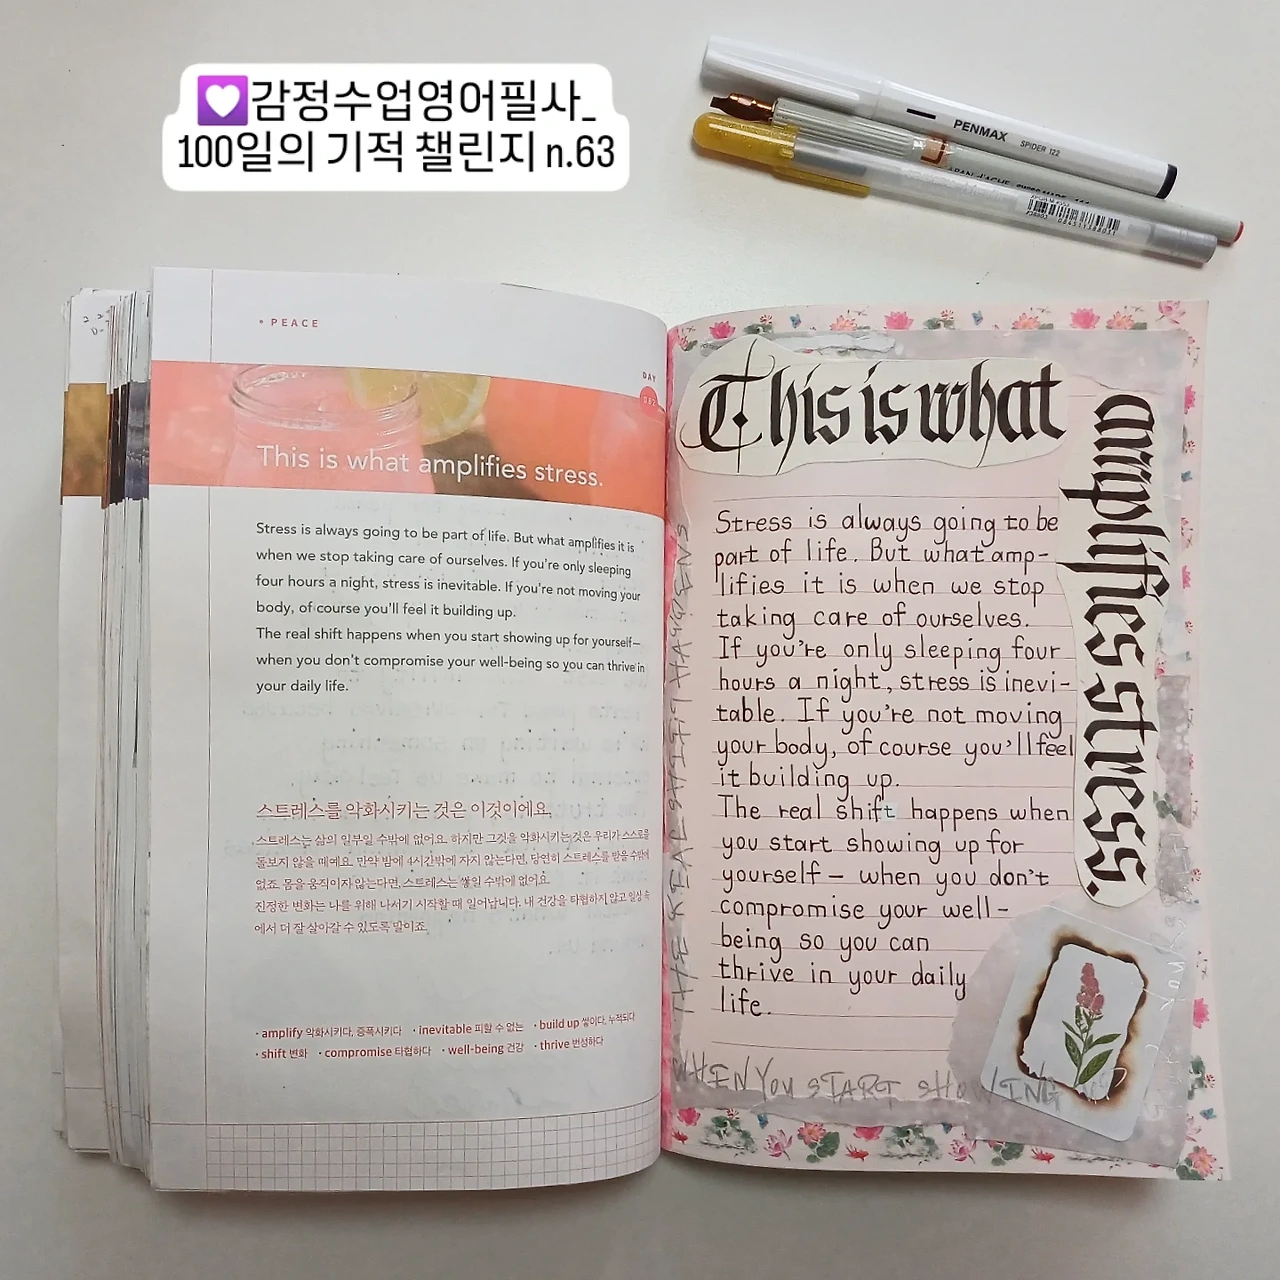 💜감정수업영어필사_
100일의 기적 챌린지 n.63
PENMAX SPIDER 122
• PEACE
DAY
This is what amplifies stress.
Stress is always going to be part of life. But what amplifies it is
when we stop taking care of ourselves. If you're only sleeping
four hours a night, stress is inevitable. If you're not moving your
body, of course you'll feel it building up.
The real shift happens when you start showing up for yourself—
when you don't compromise your well-being so you can thrive in
your daily life.
스트레스를 악화시키는 것은 이것이에요.
스트레스는 삶의 일부일 수밖에 없어요. 하지만 그것을 악화시키는 것은 우리가 스스로를
돌보지 않을 때예요. 만약 밤에 4시간밖에 자지 않는다면, 당연히 스트레스를 받을 수밖에
없죠. 몸을 움직이지 않는다면, 스트레스는 쌓일 수밖에 없어요.
진정한 변화는 나를 위해 나서기 시작할 때 일어납니다. 내 건강을 타협하지 않고 일상 속
에서 더 잘 살아갈 수 있도록 말이죠.
· amplify 악화시키다, 증폭시키다 · inevitable 피할 수 없는 · build up 쌓이다, 누적되다
· shift 변화 · compromise 타협하다 · well-being 건강 · thrive 번성하다
This is what
amplifies stress.
Stress is always going to be
part of life. But what amp-
lifies it is when we stop
taking care of ourselves.
If you're only sleeping four
hours a night, stress is inevi-
table. If you're not moving
your body, of course you'll feel
it building up.
The real shift happens when
you start showing up for
yourself — when you don't
compromise your well-
being so you can
thrive in your daily
life.
THE REAL SHIFT HAPPENS
WHEN YOU START SHOWING UP